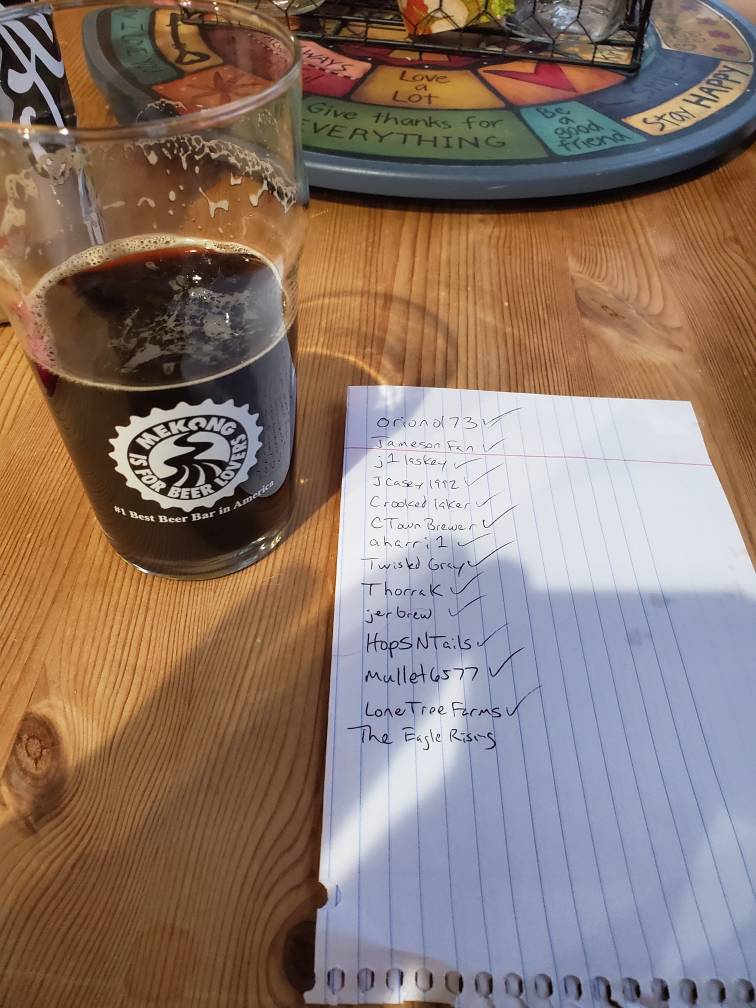 I Love You
ALWAYS
Love
a
Lot
Give thanks for
EVERYTHING
Be
a
good
friend
Stay HAPPY
MEKONG
IS FOR BEER LOVERS
#1 Best Beer Bar in America
oriond73 ✓
Jameson Fan ✓
j1laskey ✓
JCasey1992 ✓
Crooked laker ✓
CTown Brewer ✓
aharri1 ✓
Twisted Gray ✓
ThorraK ✓
jerbrew ✓
HopSNTails ✓
mullet6577 ✓
LoneTreeFarms ✓
The Eagle Rising